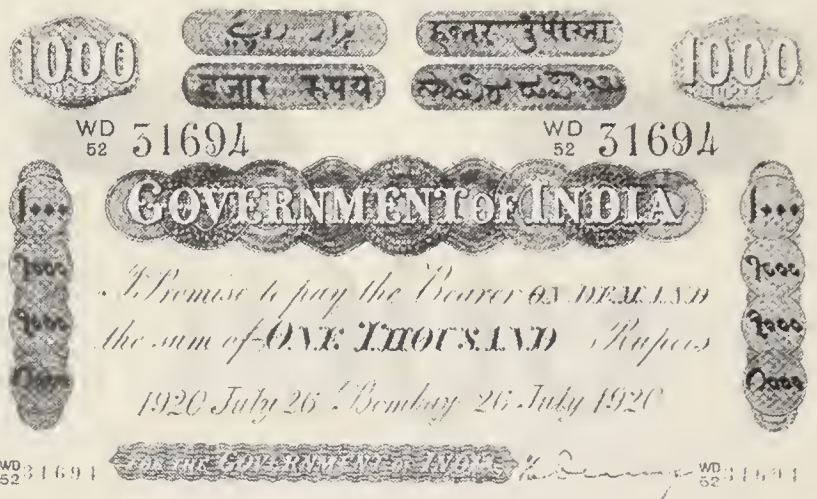 1000 1000
हजार रुपये
WD 52 31694 WD 52 31694
GOVERNMENT OF INDIA
1000 1000
I Promise to pay the Bearer ON DEMAND
the sum of ONE THOUSAND Rupees
1920 July 26 Bombay 26 July 1920
FOR THE GOVERNMENT OF INDIA
WD 52 31694 WD 52 31694